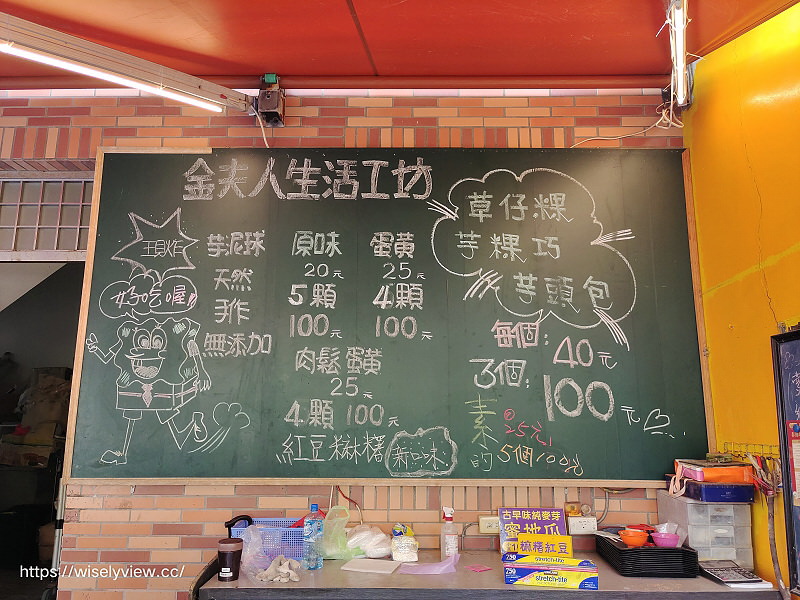 金夫人生活工坊
現炸
好吃喔!!
芋泥球
天然
手作
無添加
原味
20元
5顆
100元
蛋黃
25元
4顆
100元
肉鬆蛋黃
25元
4顆 100元
紅豆麻糬
新口味
草仔粿
芋粿巧
芋頭包
每個: 40元
3個: 100元
素的
25元
5個100元
古早味純麥芽
蜜地瓜
麻糬紅豆
750
stretch-tite
750
stretch-tite
https://wiselyview.cc/